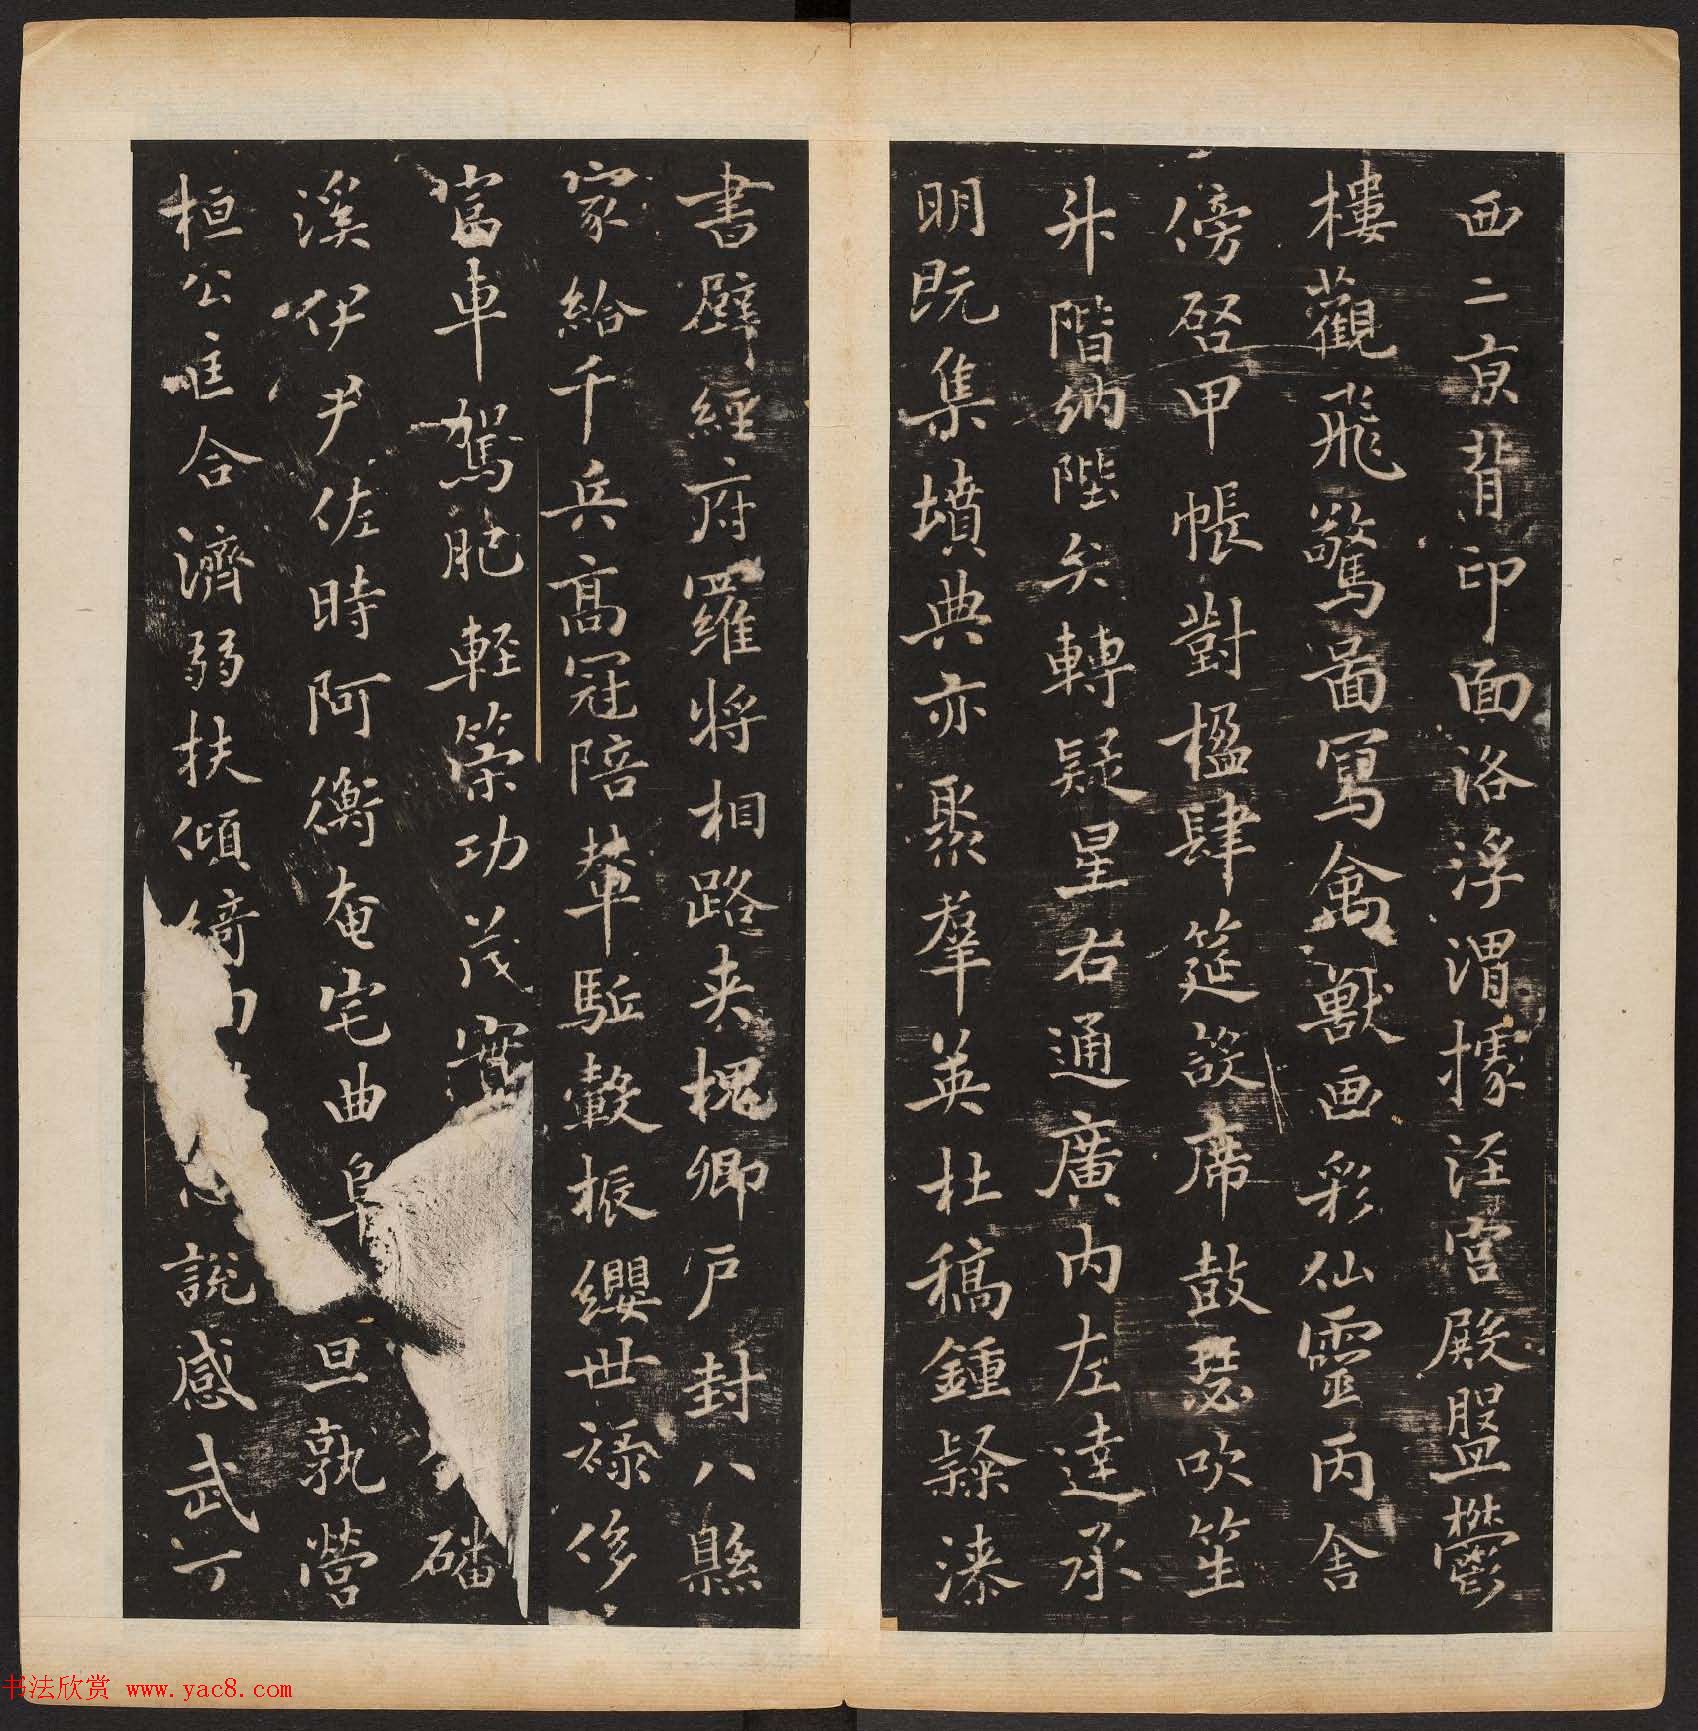 西二京背邙面洛浮渭據涇宮殿盤欝
樓觀飛驚圖寫禽獸画彩仙靈丙舍
傍啓甲帳對楹肆筵設席鼓瑟吹笙
升階納陛弁轉疑星右通廣内左達承
明既集墳典亦聚羣英杜稿鍾隸漆
書壁經府羅將相路夾槐卿户封八縣
家給千兵高冠陪輦駈轂振纓世祿侈
富車駕肥輕策功茂實磻
溪伊尹佐時阿衡奄宅曲阜旦孰營
桓公匡合濟弱扶傾綺說感武丁
书法欣赏 www.yac8.com